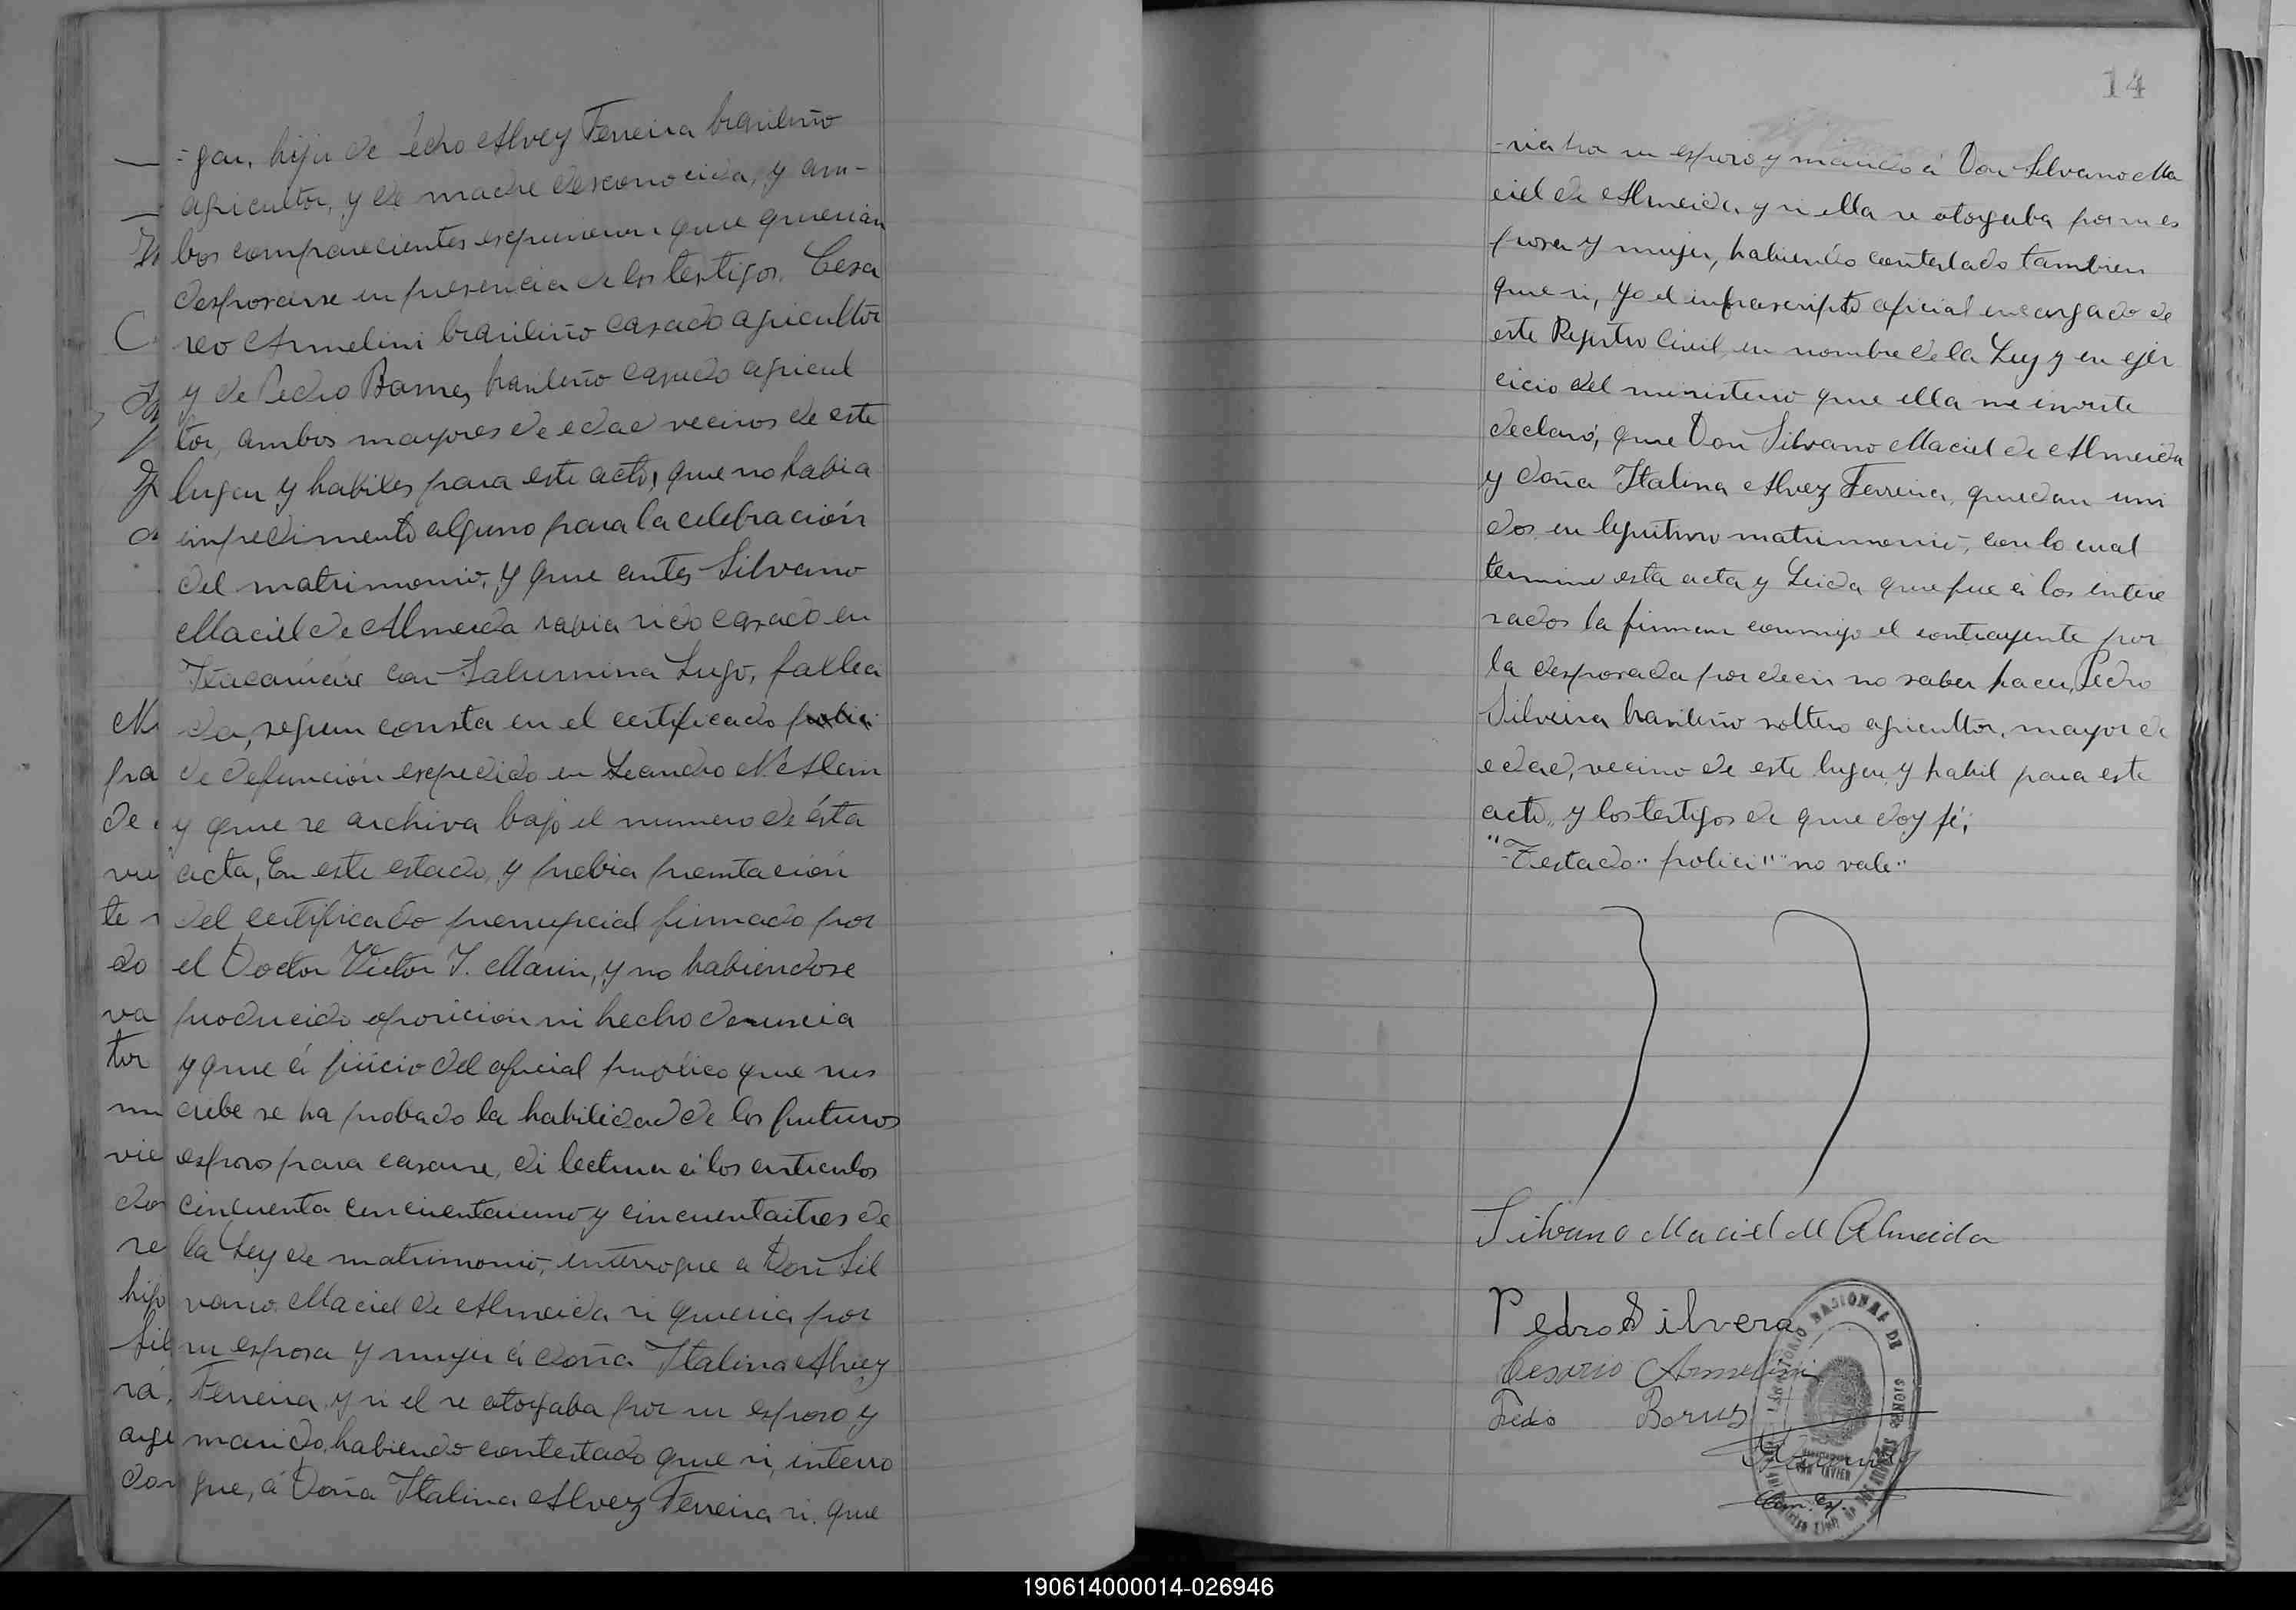 =gar, hija de Pedro Alvez Ferreira brasileño
agricultor, y de madre desconocida, y am-
bos comparecientes expusieron que querian
desposarse en presencia de los testigos, Cesa
reo Armelini brasileño casado agricultor
y de Pedro Borues, brasileño casado agricul
tor, ambos mayores de edad vecinos de este
lugar y habiles para este acto, que no habia
impedimento alguno para la celebración
del matrimonio, y que antes Silvano
Maciel de Almeida habia sido casado en
con Salurmina Lugo, falleci
da, segun consta en el certificado polici
de defunción expedido en Leandro N. Alem
y que se archiva bajo el numero de ésta
acta, En este estado, y prebia presentación
del certificado prenupcial firmado por
el Doctor Victor J. Marin, y no habiendose
producido oposicion ni hecho denuncia
y que á juicio del oficial publico que sus
cribe se ha probado la habilidad de los futuros
esposos para casarse, di lectura á los articulos
cincuenta cincuentaiuno y cincuentaitres de
la Ley de matrimonio, interrogue a Don Sil
vano Maciel de Almeida si queria por
su esposa y mujer á doña Italina Alvez
Ferreira y si el se otorgaba por su esposo y
marido, habiendo contestado que si, interro
gue, á Doña Italina Alvez Ferreira si que
14
-ria por su esposo y marido á Don Silvano Ma
ciel de Almeida, y si ella se otorgaba por su es
posa y mujer, habiendo contestado tambien
que si, Yo el infrascripto oficial encargado de
este Registro Civil, en nombre de la Ley y en ejer
cicio del ministerio que ella me inviste
declaró, que Don Silvano Maciel de Almeida
y doña Italina Alvez Ferreira, quedan uni
dos, en legitimo matrimonio, con lo cual
termino esta acta y Leida que fue á los intere
sados la firman conmigo el contrayente por
la desposada por decir no saber hacer, Pedro
Silveira brasileño soltero agricultor, mayor de
edad, vecino de este lugar, y habil para este
acto, y los testigos de que doy fé;
"Testado" polici" "no vale"
Silvano Maciel M Almeida
Pedro Silvera
Cesario Armelini
Pedro Borues
190614000014-026946